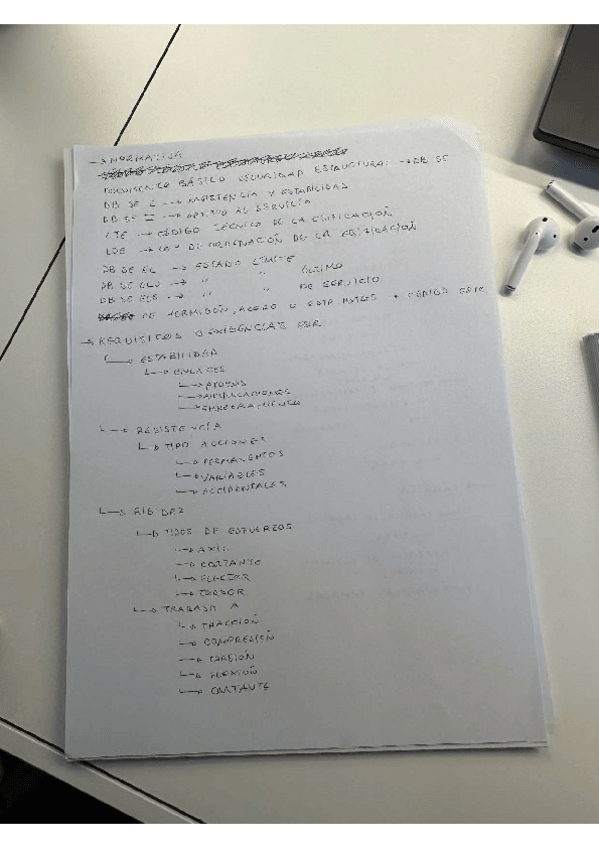 → NORMATIVA
DOCUMENTO BÁSICO SEGURIDAD ESTRUCTURAL → DB SE
DB SE → RESISTENCIA Y ESTABILIDAD
DB SE → APTITUD AL SERVICIO
CTE → CÓDIGO TÉCNICO DE LA EDIFICACIÓN
LOE → LEY DE ORDENACIÓN DE LA EDIFICACIÓN
DB SE EL → ESTADO LÍMITE
DB SE ELU → " " ÚLTIMO
DB SE ELS → " " DE SERVICIO
DE HORMIGÓN, ACERO + CÓDIGO
→ REQUISITOS O EXIGENCIAS
↳ ESTABILIDAD
↳ ENLACES
↳ APOYOS
↳ ARTICULACIONES
↳ EMPOTRAMIENTO
↳ RESISTENCIA
↳ TIPO ACCIONES
↳ PERMANENTES
↳ VARIABLES
↳ ACCIDENTALES
↳ RIGIDEZ
↳ TIPOS DE ESFUERZOS
↳ AXIL
↳ CORTANTE
↳ FLECTOR
↳ TORSOR
↳ TRABAJO A
↳ TRACCIÓN
↳ COMPRESIÓN
↳ TORSIÓN
↳ FLEXIÓN
↳ CORTANTE